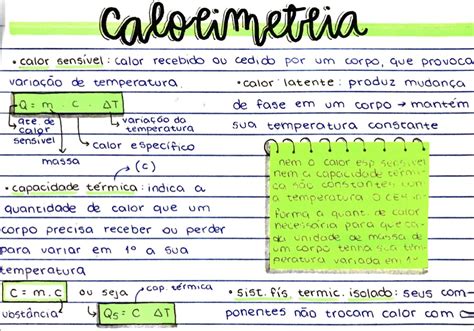 Calorimetria
• calor sensível: calor recebido ou cedido por um corpo, que provoca
variação de temperatura.
Q = m C . ΔT
qte. de calor sensível
massa
calor específico
variação da temperatura
• calor latente: produz mudança
de fase em um corpo → mantém
sua temperatura constante
(C)
• capacidade térmica: indica a
quantidade de calor que um
corpo precisa receber ou perder
para variar em 1º a sua
temperatura
C = m.C ou seja
cap. térmica
substância
Qs = C ΔT
nem o calor esp sensível
nem a capacidade térmi
ca são constantes com
a temperatura. O
forma a quant. de calor
necessária para que ca
da unidade de massa de
um corpo tenha sua tem
peratura variada em 1º
• sist. fís. termic. isolado: seus com-
ponentes não trocam calor com